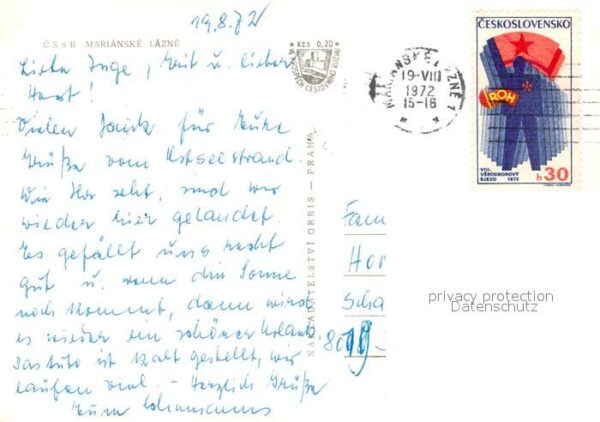 19.8.72
ČSSR MARIÁNSKÉ LÁZNĚ
Liebe Inge, Erit u. lieber
Horst!
Vielen Dank für Eure
Grüße vom Ostseestrand.
Wie Ihr seht, sind wir
wieder hier gelandet.
Es gefällt uns recht
gut u. wenn die Sonne
noch kommt, dann wird
es wieder ein schöner Urlaub
Das Auto ist kalt gestellt, wir
laufen viel. - Herzlich Grüße
Eure
NAKLADATELSTVÍ ORBIS — PRAHA
Kčs 0,20
MARIÁNSKÉ LÁZNĚ 1
19-VIII
1972
15-16
ČESKOSLOVENSKO
ROH
VIII.
VŠEODBOROVÝ
SJEZD 1972
h 30
Fam
Hor
Scha
8019
privacy protection
Datenschutz